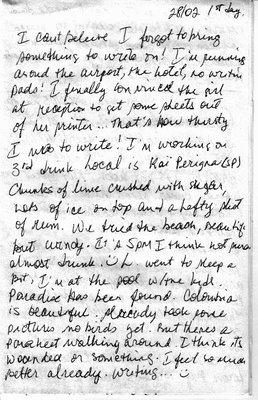 28/02 1st day.
I cant believe I forgot to bring
something to write on! I'm running
around the airport, the hotel, no writing
pads! I finally convinced the girl
at reception to get some sheets out
of her printer... That's how thirsty
I was to write! I'm working on
3rd drink local is Kai Perigna (SP)
Chunks of lime crushed with sugar,
lots of ice on top and a hefty shot
of rum. We tried the beach, beautiful
but windy. It's 5PM I think not sure
almost drunk. L went to sleep a
bit, I'm at the pool w/the kids.
Paradise has been found. Colombia
is beautiful. Already took some
pictures no birds yet. But there's a
parakeet walking around I think its
wounded or something. I feel so much
better already. Writing...